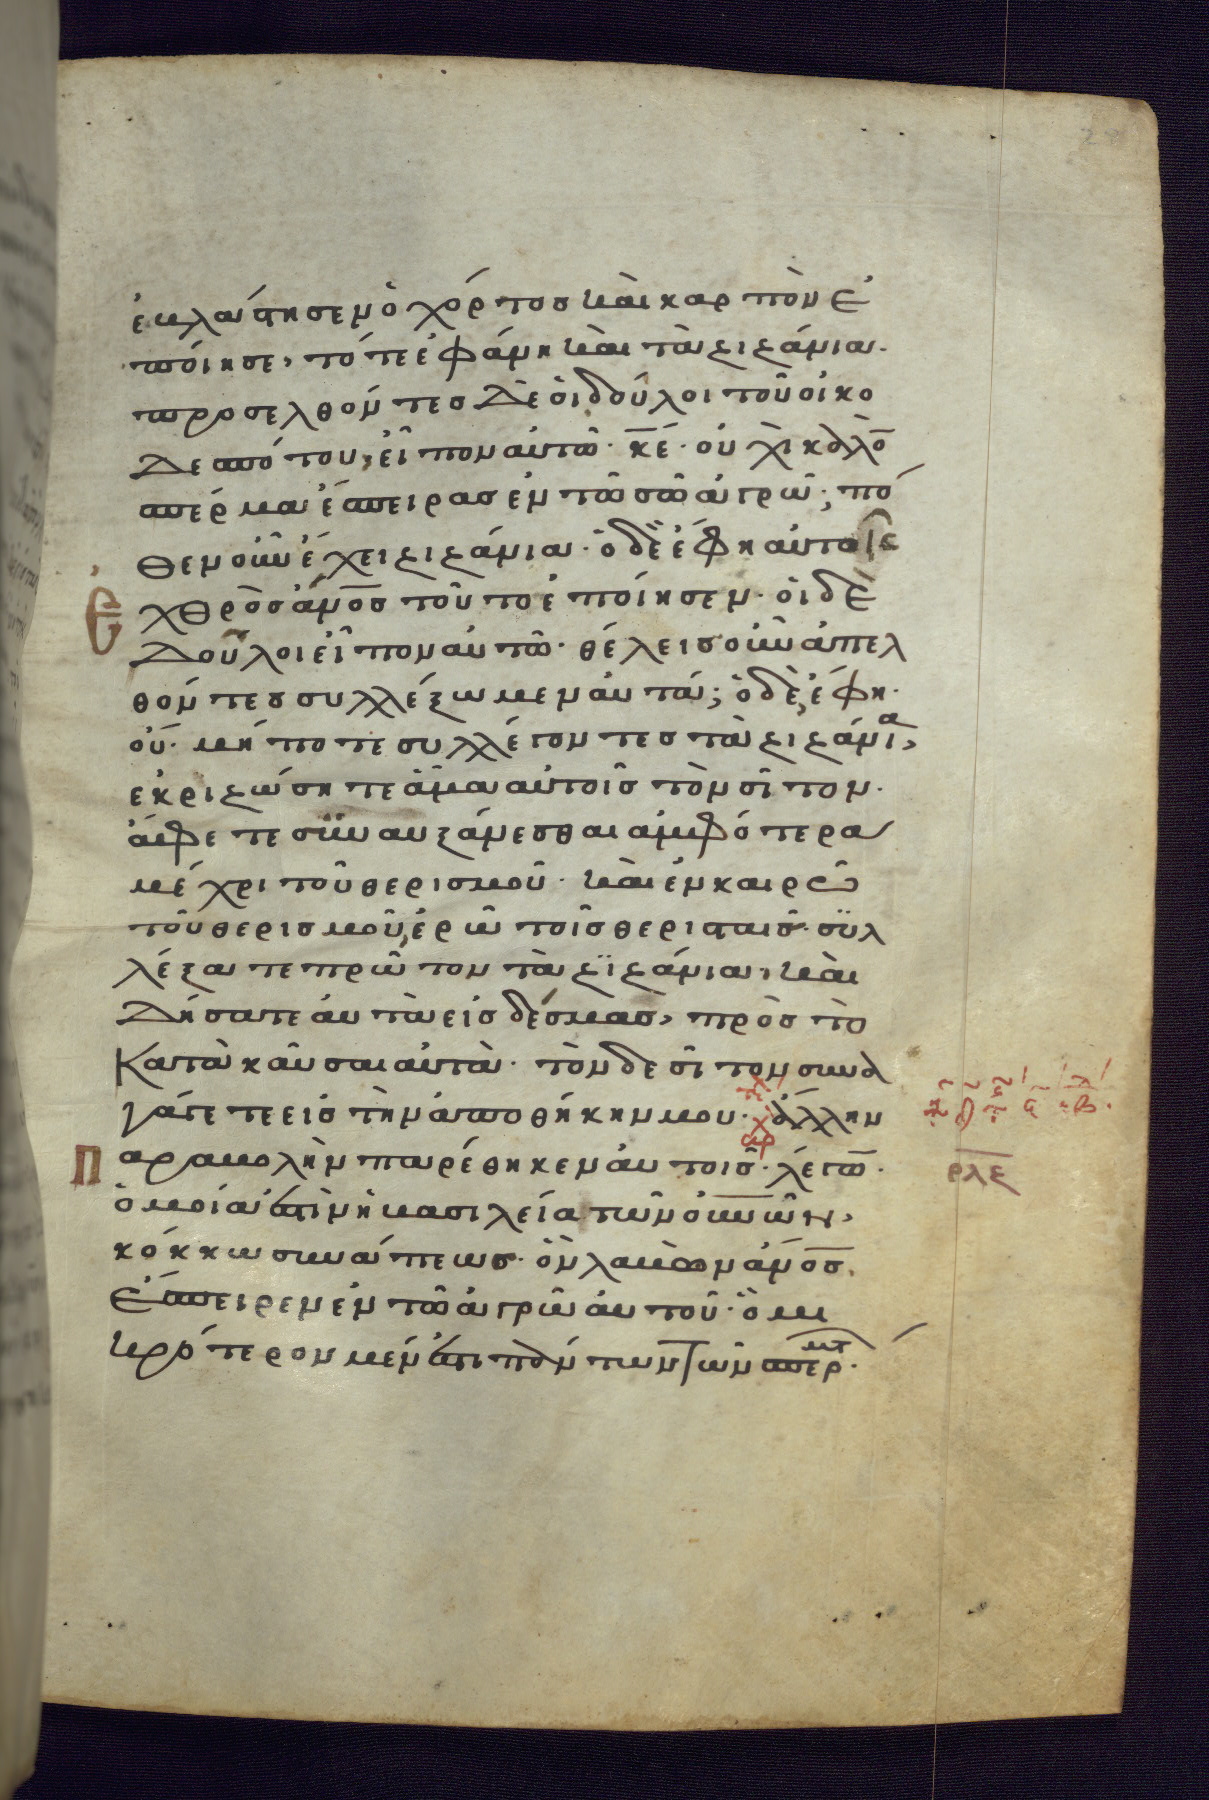 ἐβλάστησεν ὁ χόρτος καὶ καρπὸν ἐ
ποίησε, τότε ἐφάνη καὶ τὰ ζιζάνια.
προσελθόντες δὲ οἱ δούλοι τοῦ οἰκο
δεσπότου, εἶπον αὐτῶ· κ̅ε̅· οὐχὶ καλὸ̅
σπέρμα ἔσπειρας ἐν τῶ σῶ ἀγρῶ; πό
θεν οὖν ἔχει ζιζάνια· ὁ δὲ ἔφη αὐτοῖς
Ἐχθρὸς ἄν̅ο̅ς̅ τοῦτο ἐποίησεν· οἱ δὲ
δοῦλοι εἶπον αὐτῶ· θέλεις οὖν ἀπελ
θόντες συλλέξωμεν αὐτά; ὁ δὲ ἔφη·
οὔ· μή ποτε συλλέγοντες τὰ ζιζάνια,
ἐκριζώσητε ἅμα αὐτοῖς τὸν σῖτον.
ἄφετε συναυξάνεσθαι ἀμφότερα
μέχρι τοῦ θερισμοῦ· καὶ ἐν καιρῶ
τοῦ θερισμοῦ, ἐρῶ τοῖς θερισταῖς· συλ
λέξατε πρῶτον τὰ ζιζάνια, καὶ
δήσατε αὐτὰ εἰς δέσμας, πρὸς τὸ
Κατὰκαῦσαι αὐτὰ· τὸν δε σῖτον συνα
γάγετε εἰς τὴν ἀποθήκην μου· ἄλλην
Παραβολὴν παρέθηκεν αὐτοῖς· λέγω̅·
ὁμοία ἐστὶν ἡ βασιλεία τῶν ο̅υ̅ν̅ῶν,
κόκκω σινάπεως· ὃν λαβὼν ἄν̅ο̅ς̅.
ἔσπειρεν ἐν τῶ ἀγρῶ αὐτοῦ· ὃ μι
κρότερον μέν ἐστι πάντων τῶν σπερμτ.
ρλε